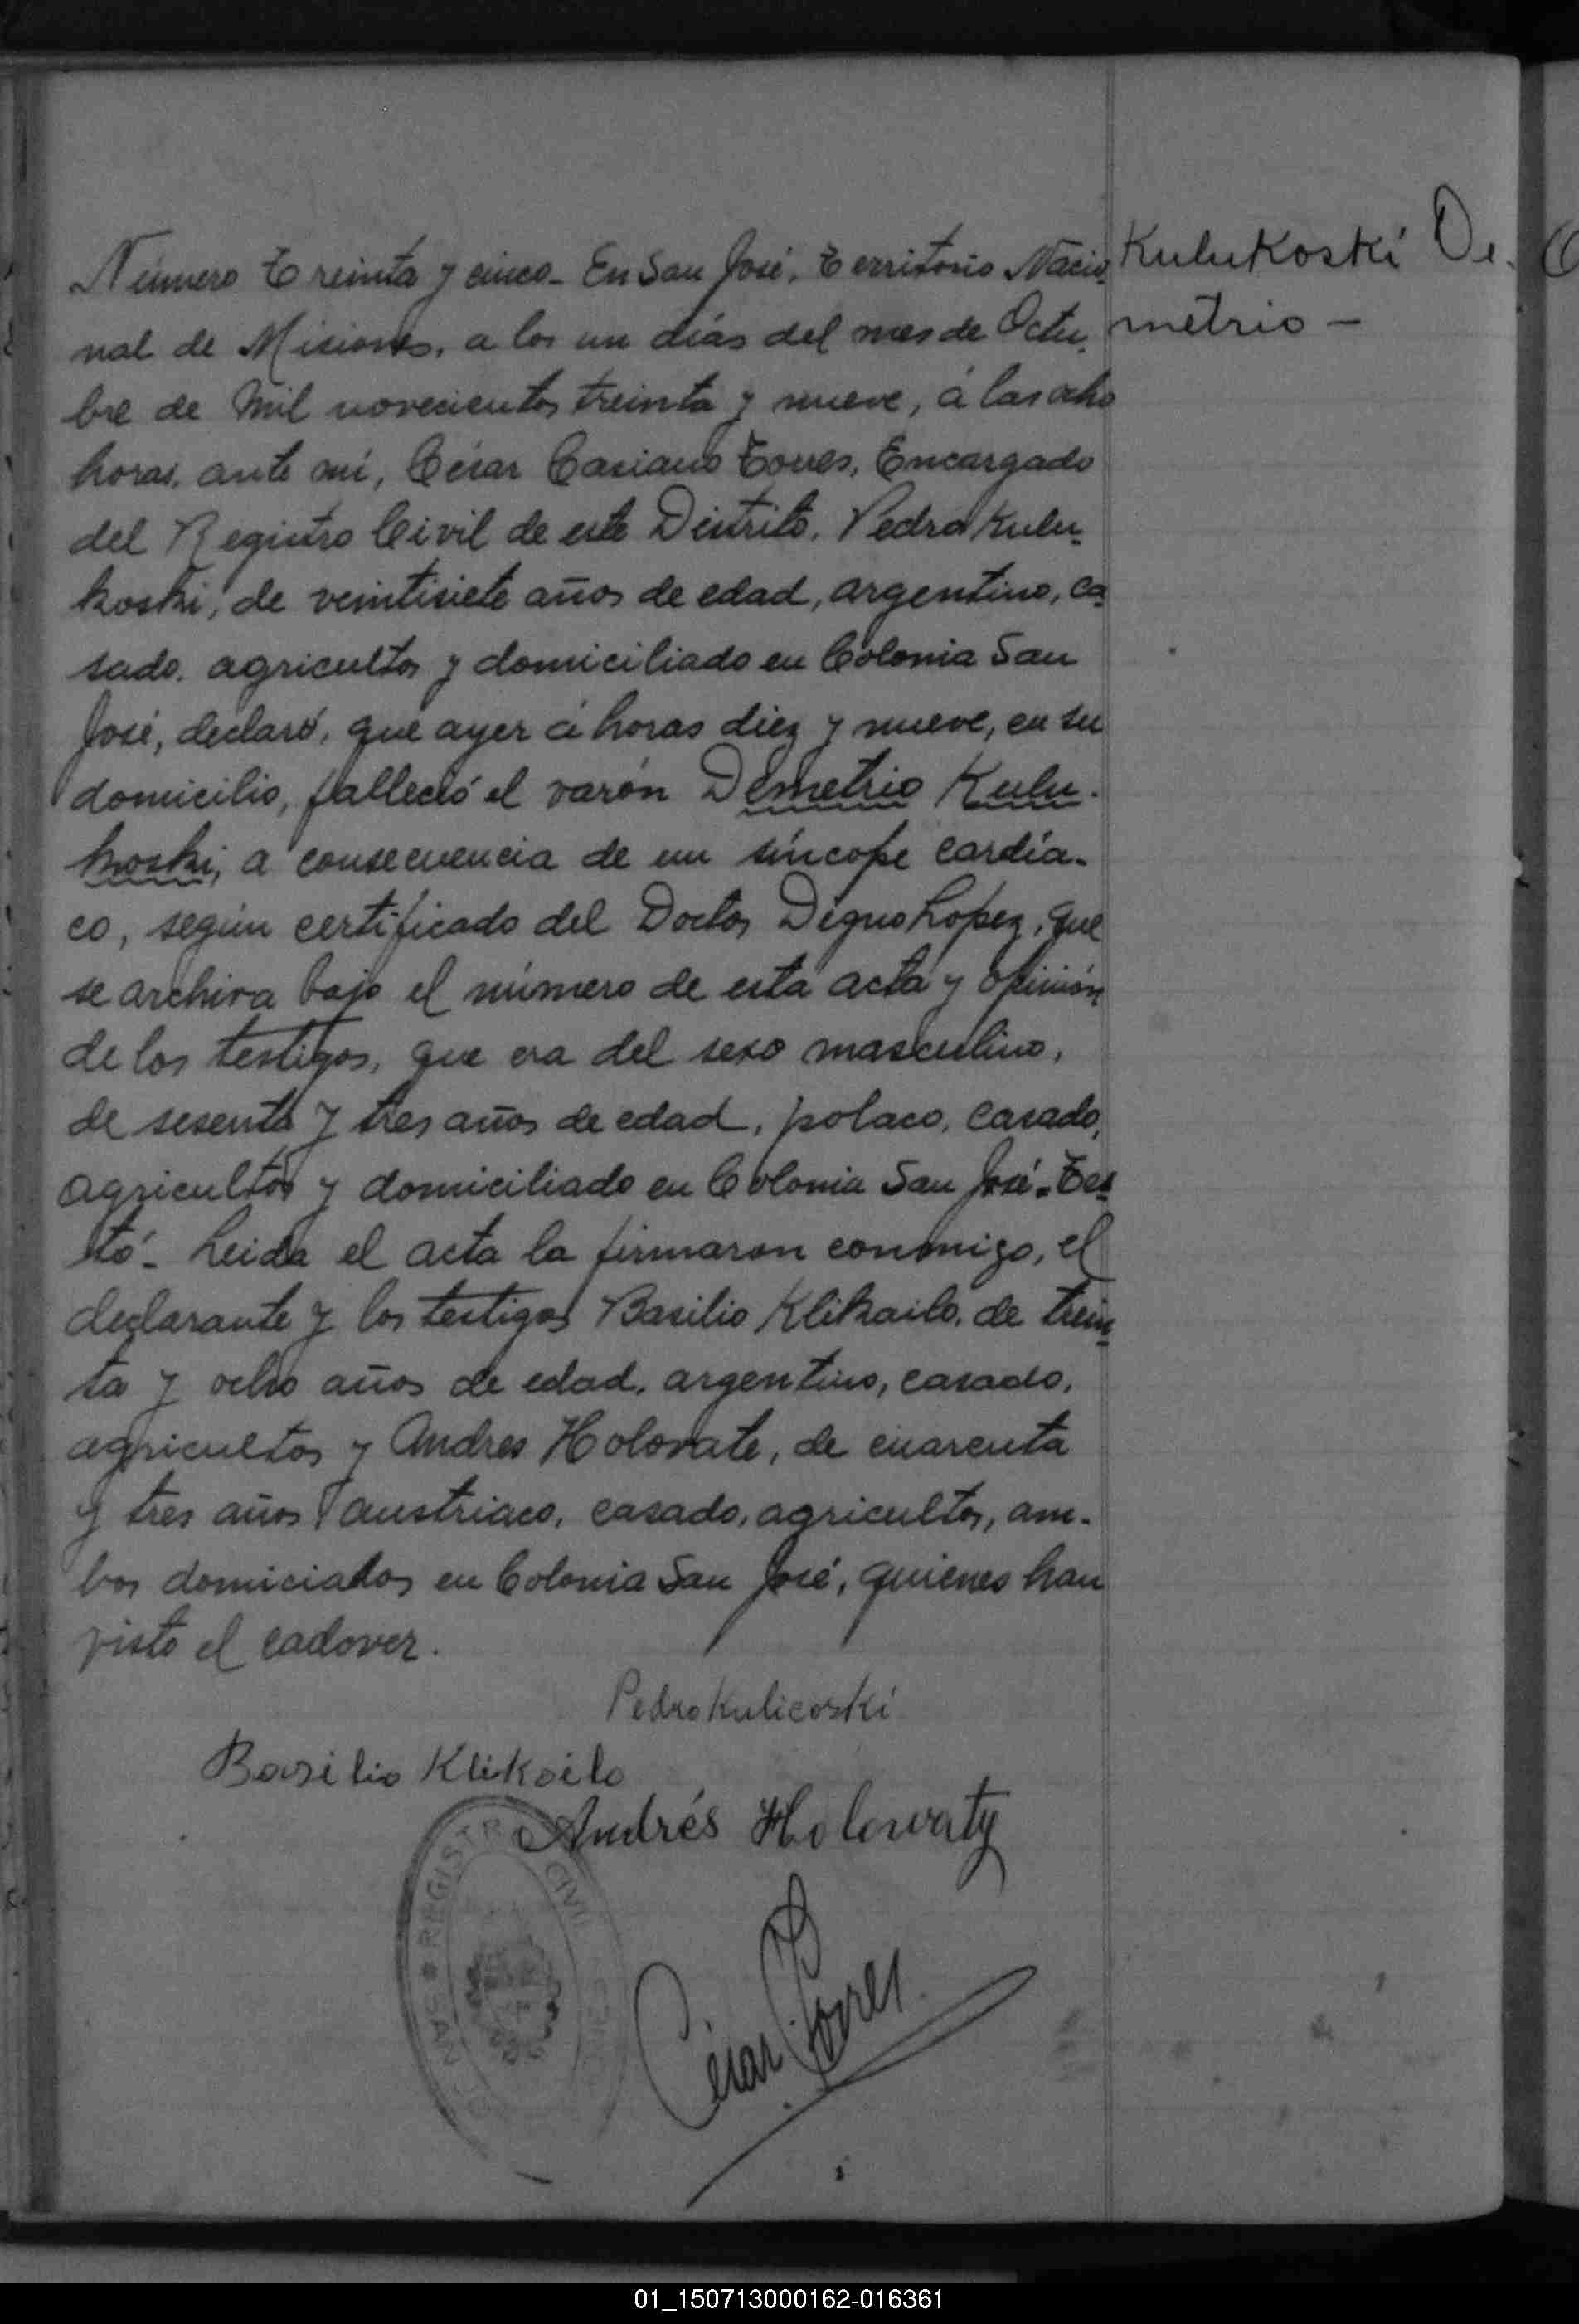 Kulukoski De-
metrio —
Número Treinta y cinco - En San José, Territorio Nacio-
nal de Misiones, a los un días del mes de Octu-
bre de Mil novecientos treinta y nueve, á las ocho
horas, ante mí, César Casiano Torres, Encargado
del Registro Civil de este Distrito, Pedro Kulu-
koski, de veintisiete años de edad, argentino, ca-
sado, agricultor y domiciliado en Colonia San
José, declaró, que ayer á horas diez y nueve, en su
domicilio, falleció el varón Demetrio Kulu-
koski, a consecuencia de un síncope cardía-
co, según certificado del Doctor Digno Lopez, que
se archiva bajo el número de esta acta y opinión
de los testigos, que era del sexo masculino,
de sesenta y tres años de edad, polaco, casado,
agricultor y domiciliado en Colonia San José. Tes-
tó - Leida el acta la firmaron conmigo, el
declarante y los testigos Basilio Klikailo, de trein-
ta y ocho años de edad, argentino, casado,
agricultor y Andres Holovate, de cuarenta
y tres años, austriaco, casado, agricultor, am-
bos domiciados en Colonia San José, quienes han
visto el cadover.
Pedro Kulicoski
Basilio Klikailo
Andrés Holowaty
REGISTRO CIVIL
SAN
César Torres
01_150713000162-016361